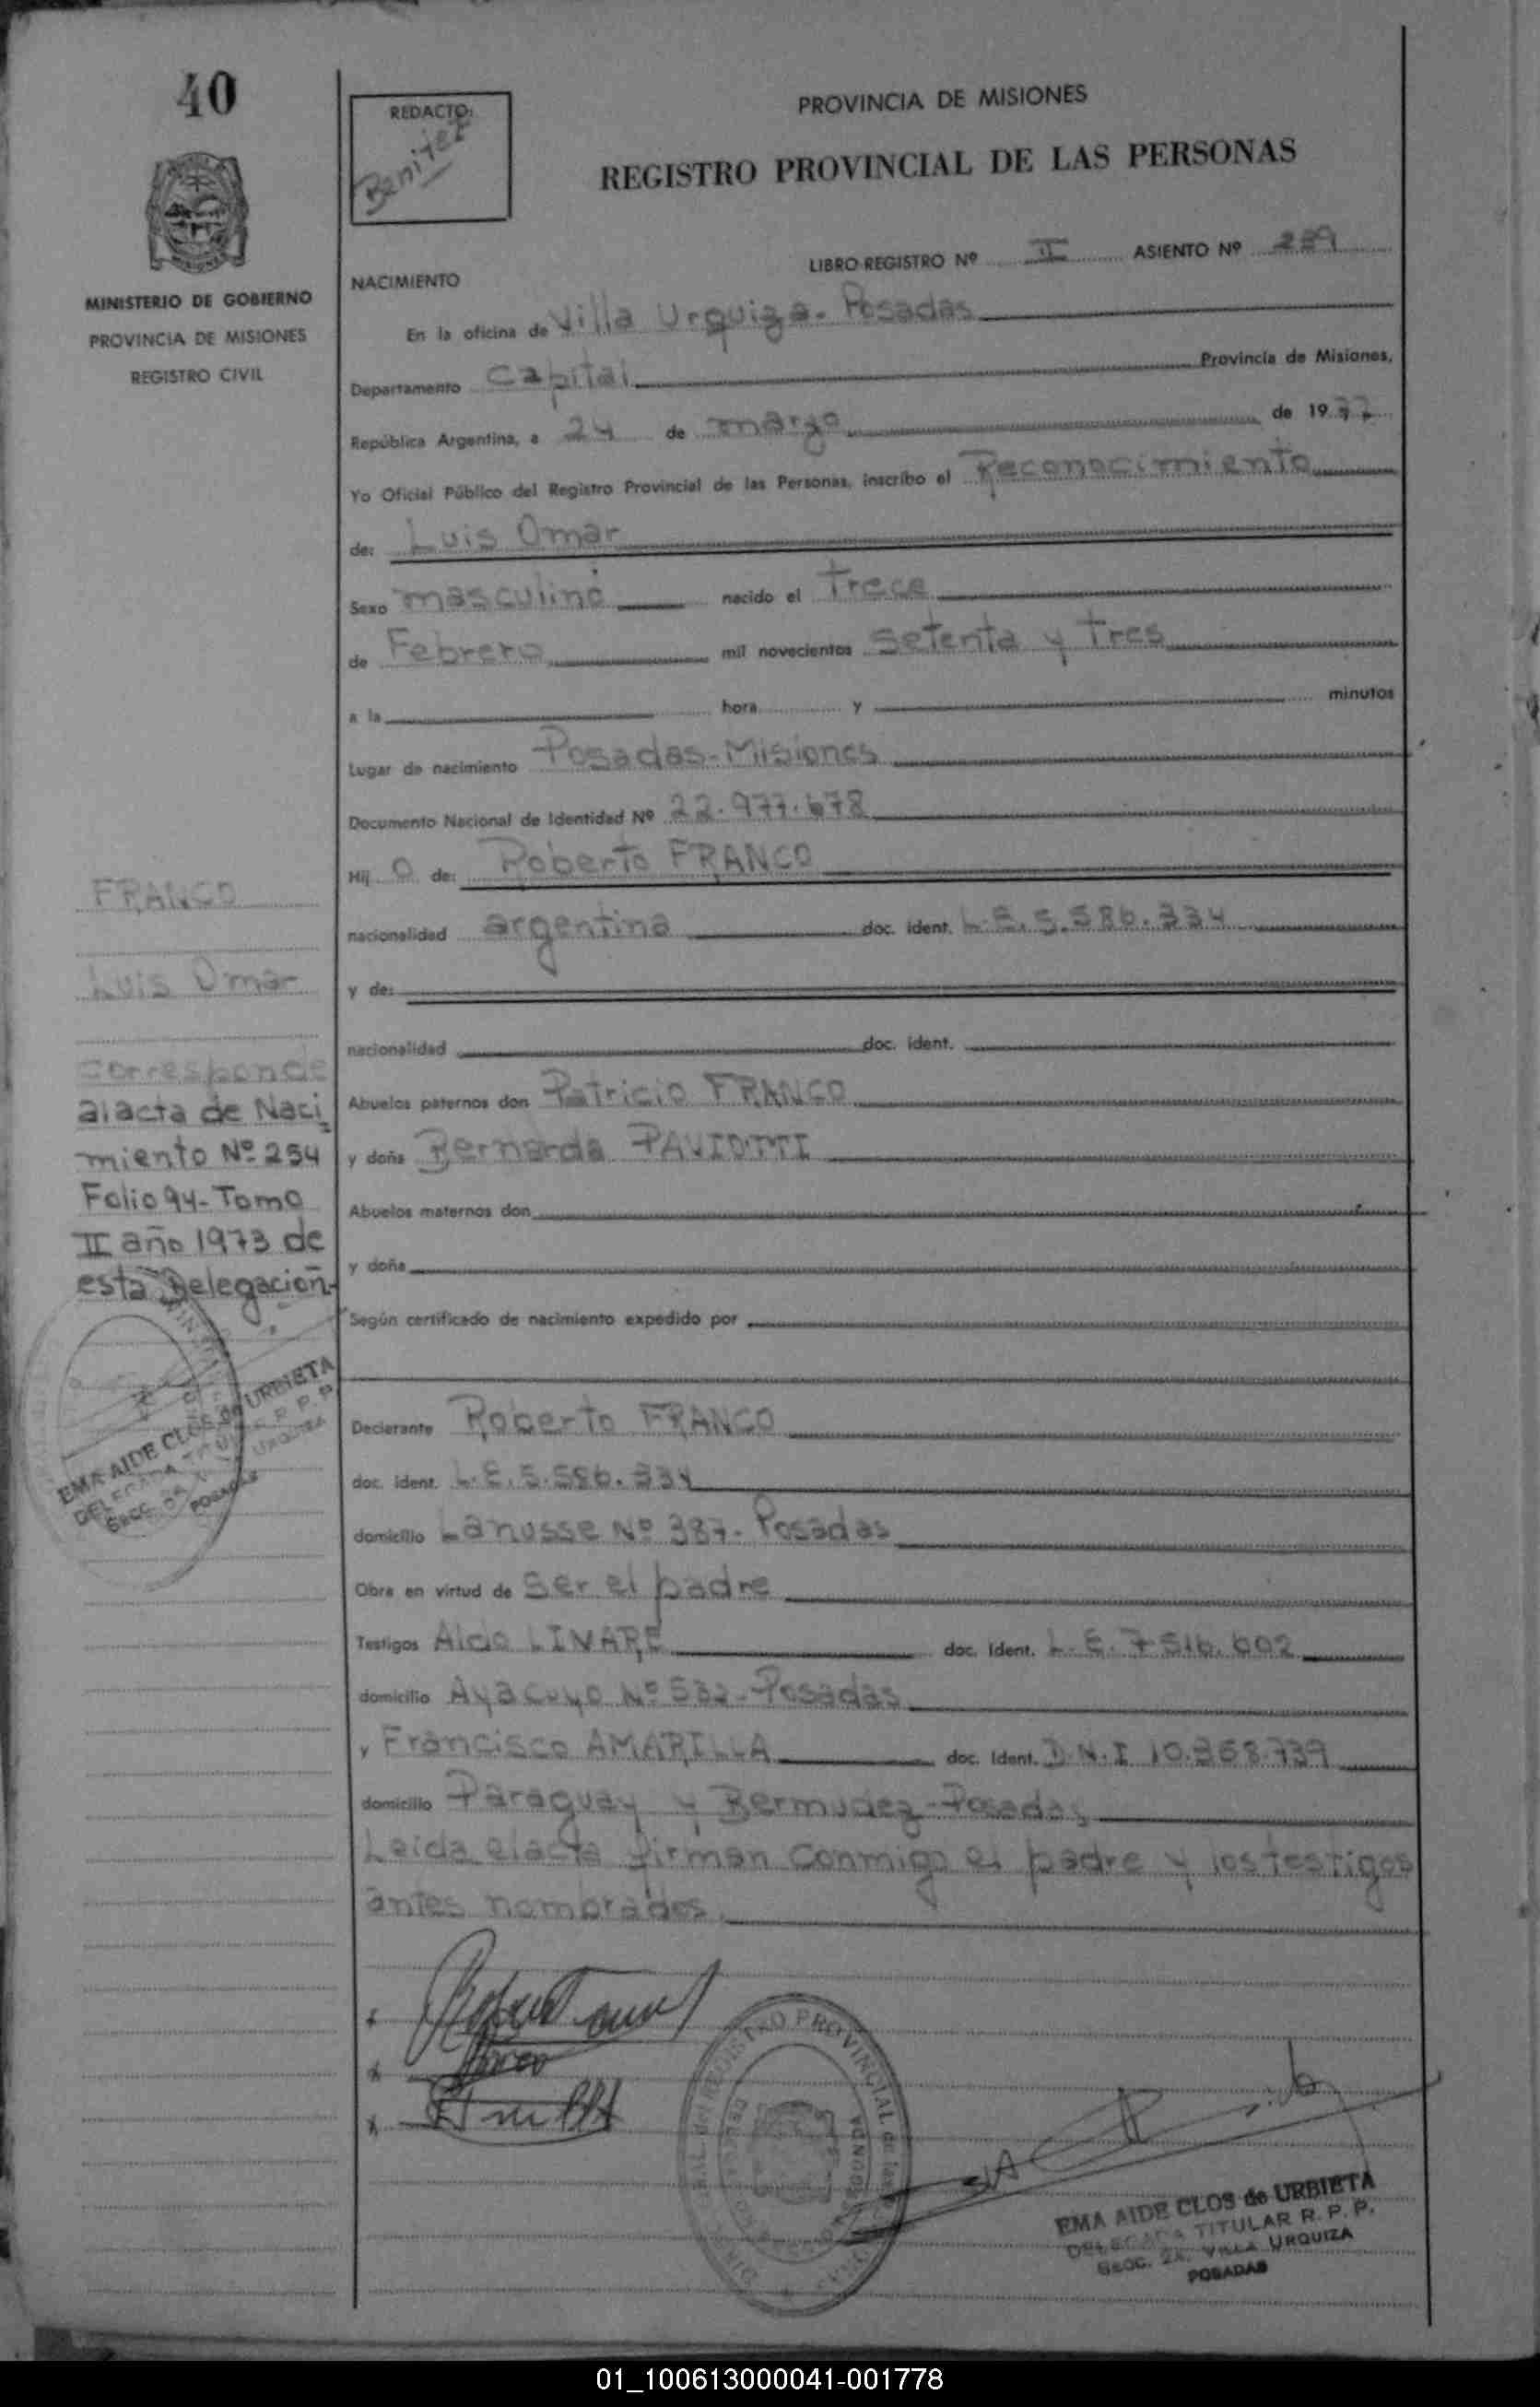 40
REDACTO:
Benitez
PROVINCIA DE MISIONES
REGISTRO PROVINCIAL DE LAS PERSONAS
MINISTERIO DE GOBIERNO
PROVINCIA DE MISIONES
REGISTRO CIVIL
LIBRO REGISTRO Nº II ASIENTO Nº 239
NACIMIENTO
En la oficina de Villa Urquiza. Posadas
Departamento Capital Provincia de Misiones,
República Argentina, a 24 de marzo de 19
Yo Oficial Público del Registro Provincial de las Personas, inscribo el Reconocimiento
de: Luis Omar
Sexo masculino nacido el Trece
de Febrero mil novecientos Setenta y Tres
a la hora y minutos
Lugar de nacimiento Posadas-Misiones
Documento Nacional de Identidad Nº 22.977.678
Hij o de: Roberto FRANCO
nacionalidad argentina doc. ident. L.E. 5.586.334
y de:
nacionalidad doc. ident.
Abuelos paternos don Patricio FRANCO
y doña Bernarda PAVIOTTI
Abuelos maternos don
y doña
Según certificado de nacimiento expedido por
Declarante Roberto FRANCO
doc. ident. L.E. 5.586.334
domicilio Lanusse Nº 387. Posadas
Obra en virtud de Ser el padre
Testigos Aldo LINARE doc. Ident. L.E. 7.516.602
domicilio Ayacuyo Nº 532-Posadas
y Francisco AMARILLA doc. Ident. D.N.I 10.968.739
domicilio Paraguay y Bermudez-Posadas
Leida el acta firman conmigo el padre y los testigos
antes nombrados.
FRANCO
Luis Omar
Corresponde
al acta de Naci
miento Nº 254
Folio 94-Tomo
II año 1973 de
esta Delegación
EMA AIDE CLOS de URBIETA
DELEGADA TITULAR R. P. P.
URQUIZA
POSADAS
REGISTRO PROVINCIAL de las
EMA AIDE CLOS de URBIETA
DELEGADA TITULAR R. P. P.
SECC. 2A. VILLA URQUIZA
POSADAS
01_100613000041-001778